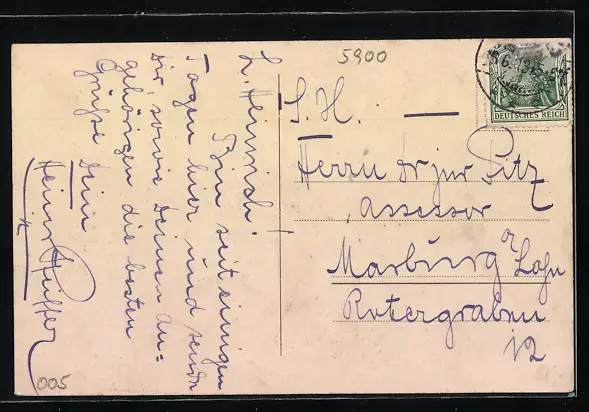 5900
DEUTSCHES REICH
L. Heinrich!
Bin seit einigen
Tagen hier und sende
Dir, sowie Deinen An=
gehörigen die besten
Grüße Dein
Heinr.
S. H.
Herrn Dr jur Pitz
Assessor
Marburg a/Lahn
Rotergraben
12
005